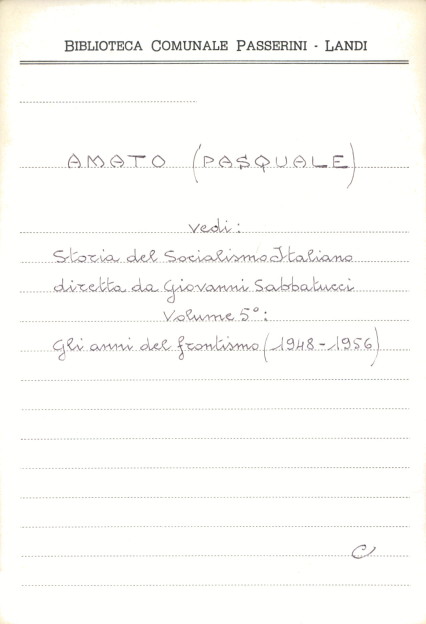 BIBLIOTECA COMUNALE PASSERINI - LANDI
AMATO (PASQUALE)
vedi:
Storia del Socialismo Italiano
diretta da Giovanni Sabbatucci
Volume 5°:
Gli anni del frontismo (1948-1956)
C